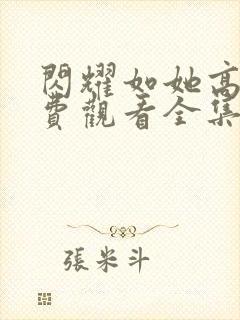 閃耀如她高
費觀看全集
張米斗